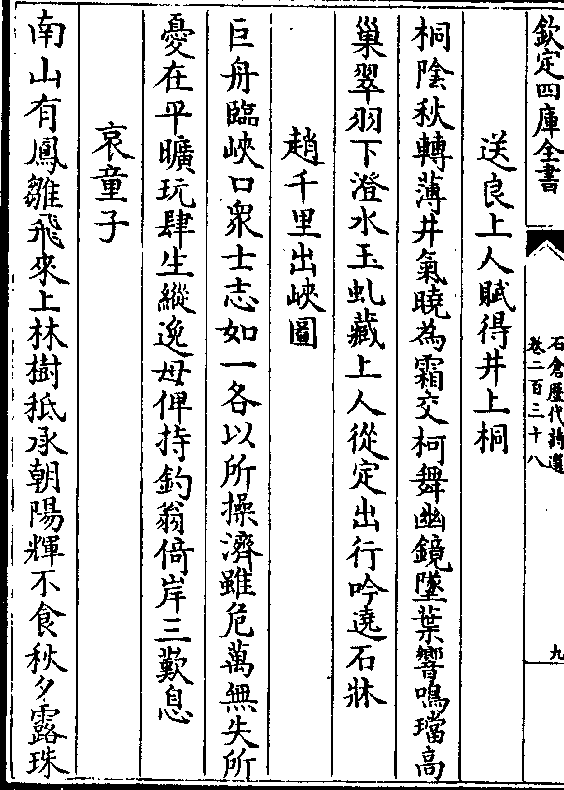 欽定四庫全書
石倉歷代詩選
卷二百三十八
九
送良上人賦得井上桐
桐陰秋轉薄井氣曉為霜交柯舞幽鏡墜葉響鳴璫高
巢翠羽下澄水玉虬藏上人從定出行吟遶石牀
趙千里出峽圖
巨舟臨峽口衆士志如一各以所操濟雖危萬無失所
憂在平曠玩肆生縱逸毋俾持釣翁倚岸三歎息
哀童子
南山有鳳雛飛來上林樹秪承朝陽輝不食秋夕露珠